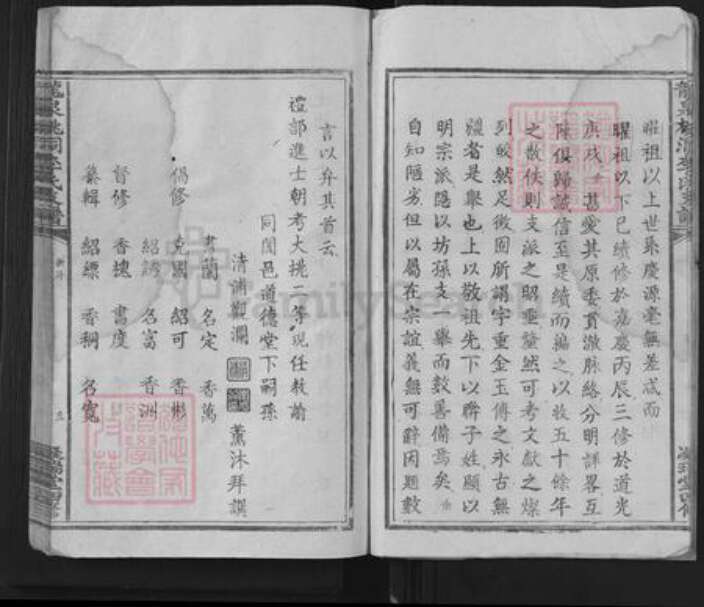 曜祖以上世系慶源毫無差忒而
曜祖以下已續修於嘉慶丙辰三修於道光
庚戌 甚愛其原委貫澈脉絡分明詳畧互
陳俱歸誠信至是續而編之以收五十餘年
之散佚則支派之昭垂釐然可考文獻之燦
列皎然足徵固所謂字重金玉傳之永古無
疆者是舉也上以敬祖先下以聯子姓顯以
明宗派隱以坊孫支一舉而數善備焉矣
自知陋劣但以屬在宗誼義無可辭因題數
言以弁其首云
禮部進士朝考大挑二等現任教諭
同閏邑道德堂下嗣孫
清浦觀瀾 薰沐拜撰
倡修 克國 紹可 香彬
書蘭 名定 香萬
紹謗 名富 香洲
督修 香塊 書度
纂輯 紹縹 香稠 名寬
龍泉桃洞李氏支譜